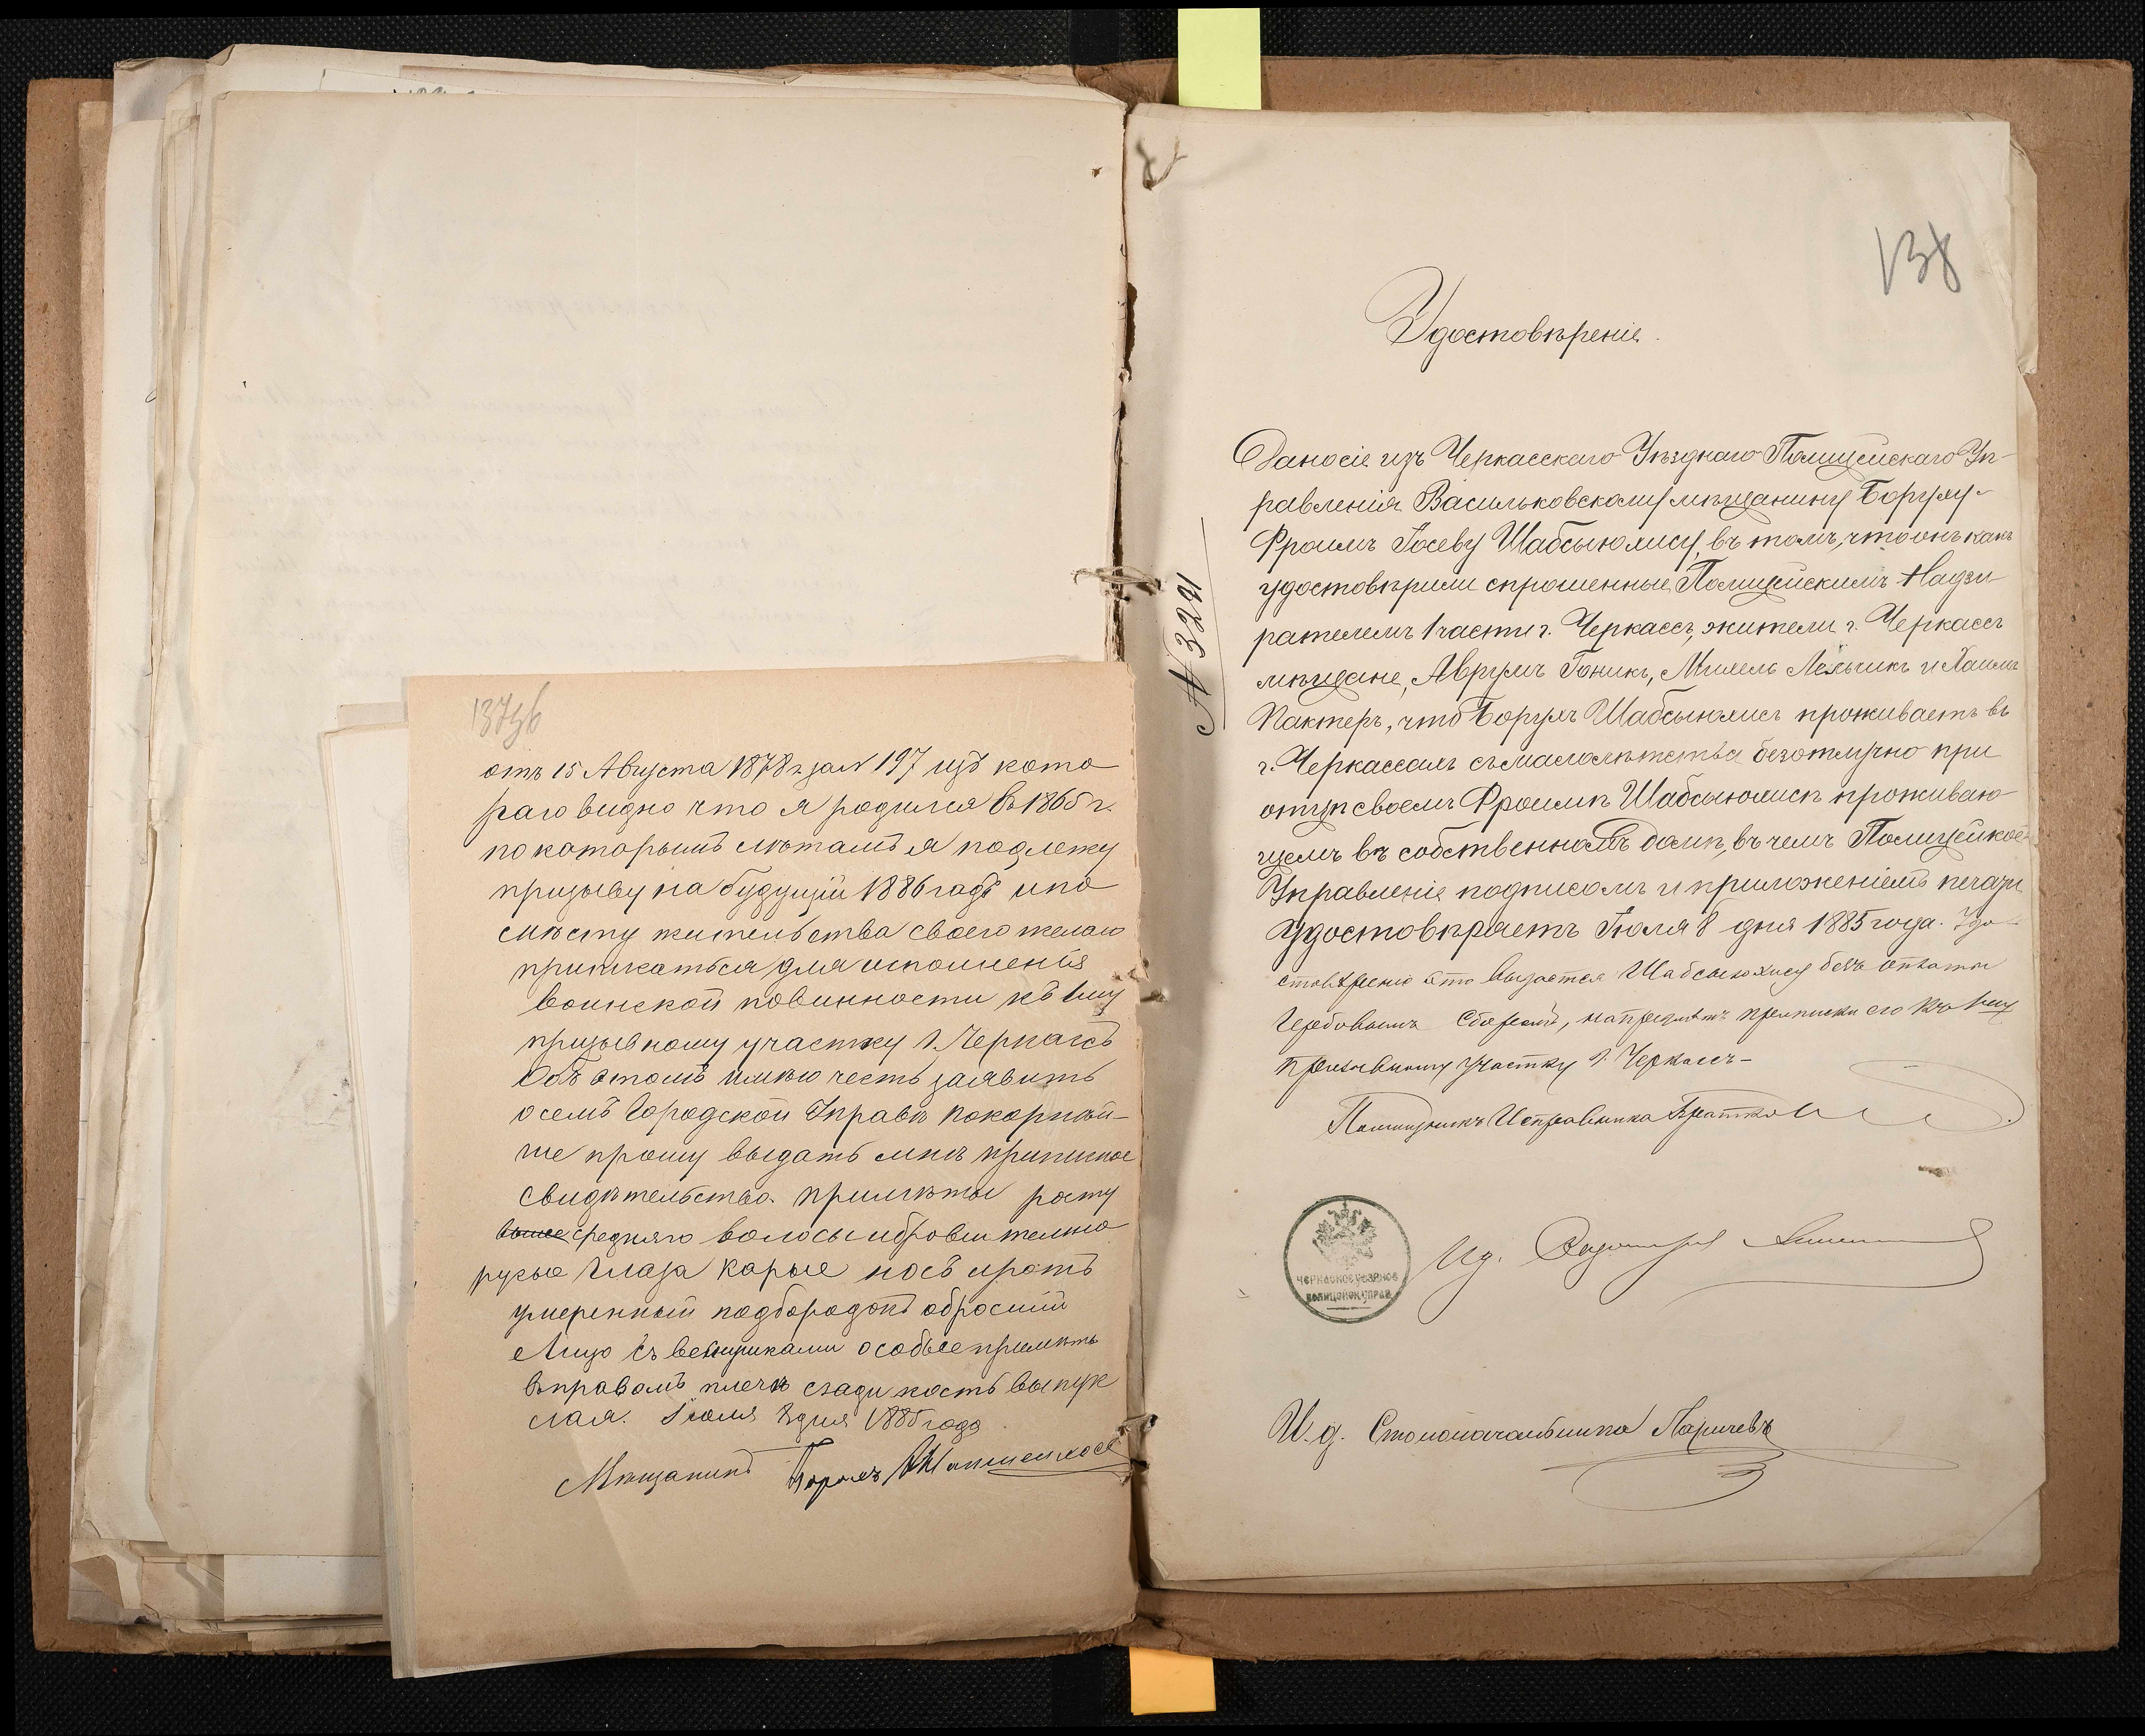 137об
отъ 15 Августа 1878 г за № 197 изъ кото
раго видно что я родился въ 1865 г.
по каторымъ летамъ я подлежу
призыву на будущій 1886 годъ и по
месту жительства своего желаю
приписаться для исполненія
воинской повинности къ 1му
призывному участку г. Черкасъ
Объ этомъ имею честь заявить
о семъ Городской Управе покорней-
ше прошу выдать мне приписное
свидетельство. приметы росту
выше средняго волосы и брови темно
русые Глаза карые носъ и ротъ
умеренный подбородокъ обросшій
Лицо съ веснушками особые приметъ
въ правомъ плече сзади кость выпук
лая. Іюля 8 дня 1885 года
Мещанинъ
138
Удостовѣреніе.
№ 3291
Дано сіе изъ Черкасскаго Уѣзднаго Полицейскаго Уп-
равленія Васильковскому мѣщанину Боруху-
Фроимъ Іосеву Шабсыюлису, въ томъ, что онъ какъ
удостовѣрили спрошенные Полицейскимъ Надзи-
рателемъ 1 части г. Черкассъ, жители г. Черкассъ
мѣщане, Аврумъ Гоникъ, Михель и Хаимъ
Пактеръ, что Борухъ Шабсыюлисъ проживаетъ въ
г. Черкассахъ съ малолѣтства безотлучно при
отцѣ своемъ Фроимѣ Шабсыюлисѣ проживаю-
щемъ въ собственномъ домѣ, въ чемъ Полицейкое
Управленіе подписомъ и приложеніемъ печати
Удостовѣряетъ Іюля 8 дня 1885 года. Удо-
стовѣреніе это выдается Шабсыюлису безъ оплаты
Гербовымъ Сборомъ, на предметъ приписки его къ 1му
призывному участку г. Черкассъ-
Помощникъ Исправника
ЧЕРКАСКОЕ УѢЗДНОЕ
ПОЛИЦЕЙСК. УПРАВ.
И. д.
И. д. Столоначальника Ларичевъ